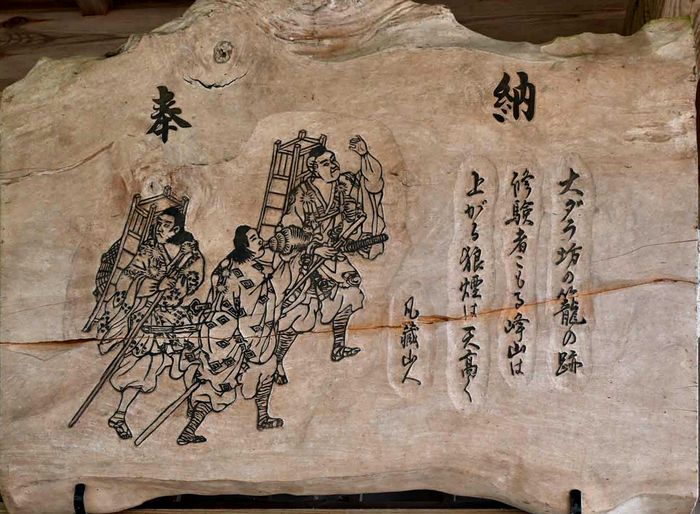 奉納
大ダラ坊の籠の跡
修験者こもる峰山は
上がる狼煙は天高く
凡蔵山人